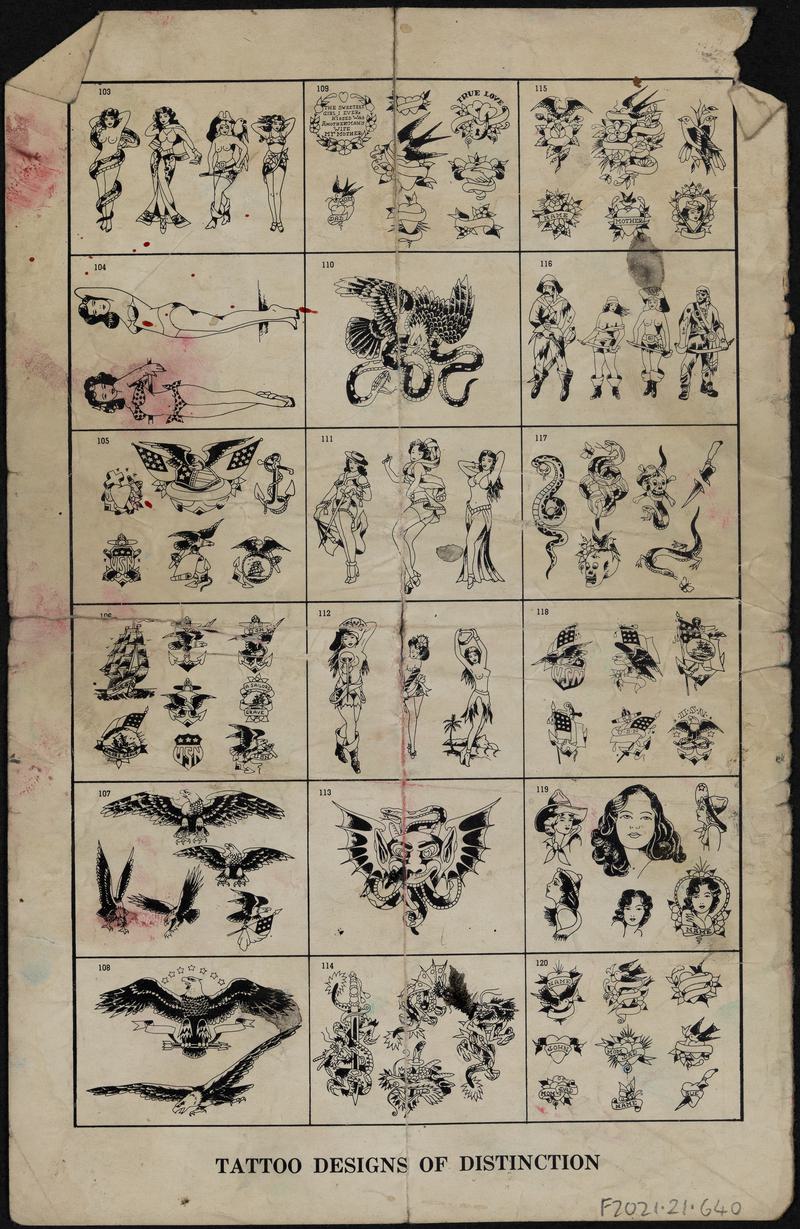 103
109
THE SWEETEST
GIRL I EVER
KISSED WAS
ANOTHER MAN'S
WIFE
MY MOTHER
TRUE LOVE
DAD
115
NAME
MOTHER
104
110
116
105
USN
111
117
106
SAILORS
GRAVE
USN
112
118
USN
U.S.N.
107
113
119
NAME
108
114
120
NAME
JOHN
MOTHER
NAME
TATTOO DESIGNS OF DISTINCTION
F2021.21.640